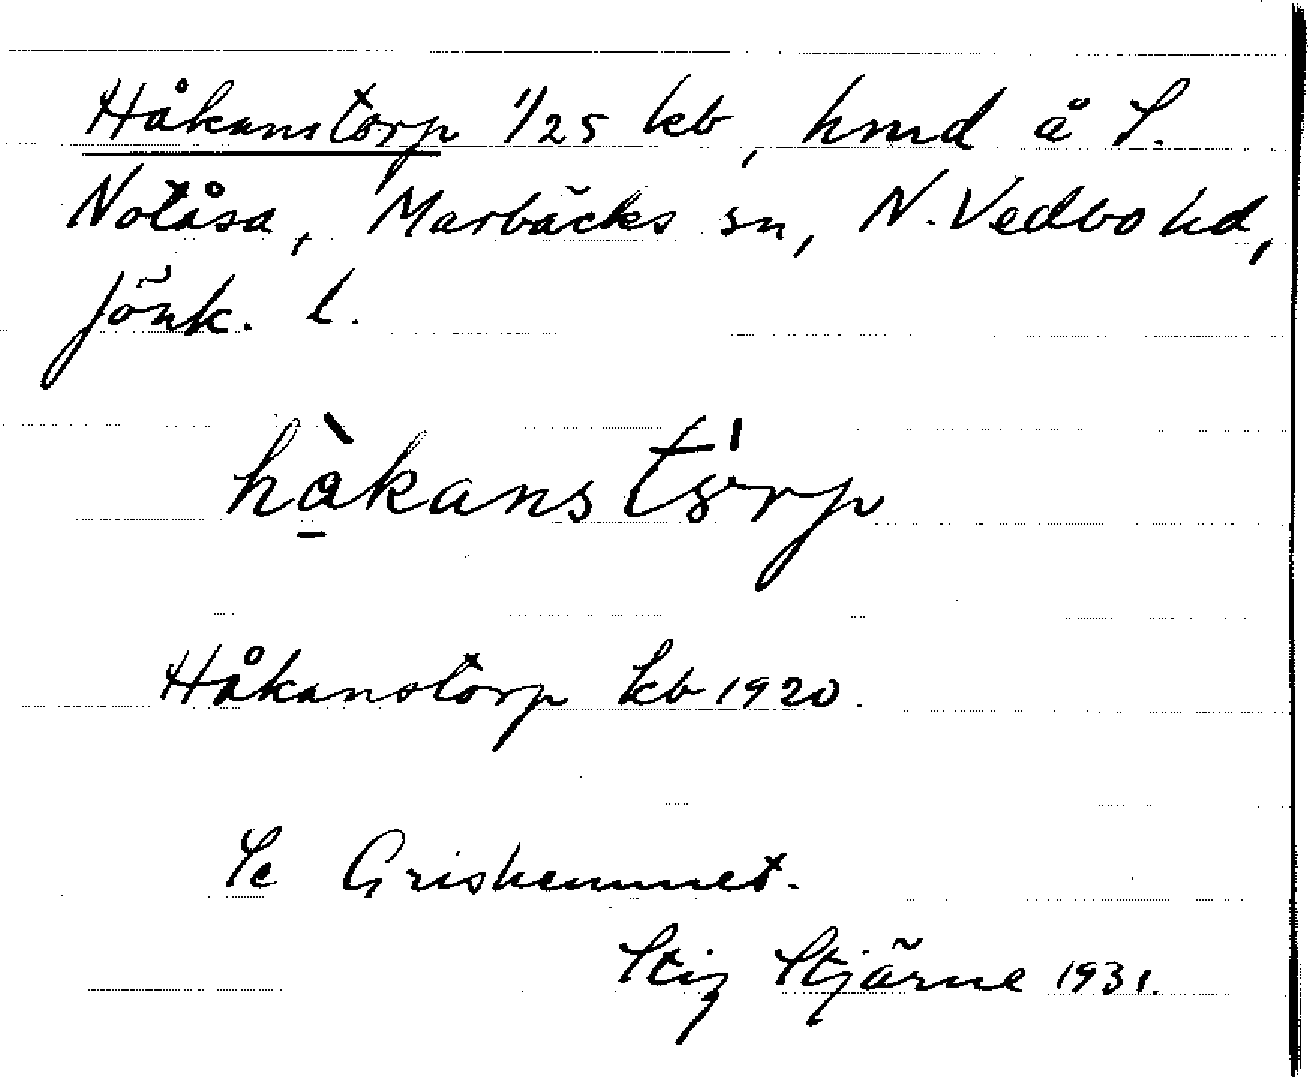 Håkanstorp 1/25 kb, hmd å S.
Notåsa, Marbäcks sn, N. Vedbo hd,
Jönk. l.
hàkanstórp
Håkanstorp kb 1920.
Se Grishemmet.
Stig Stjärne 1931.